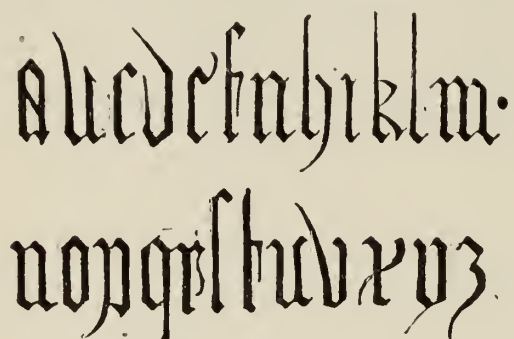 a b c d e f g h i k l m.
n o p q r ſ t u v x y z.